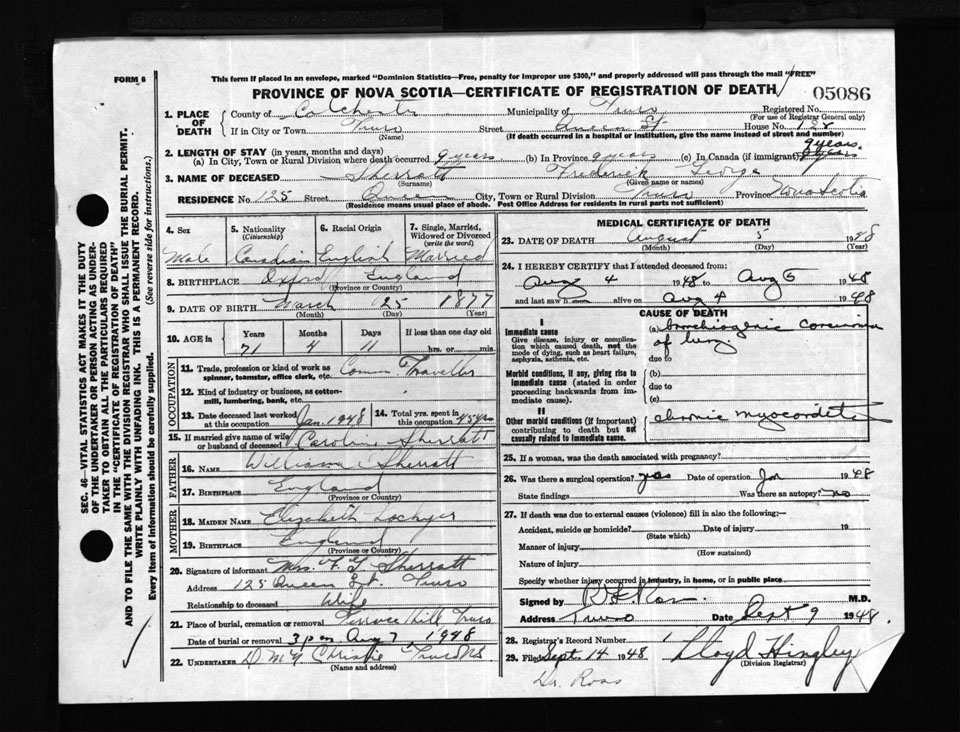 FORM 6
This form if placed in an envelope, marked "Dominion Statistics—Free, penalty for improper use $300," and properly addressed will pass through the mail "FREE"
PROVINCE OF NOVA SCOTIA—CERTIFICATE OF REGISTRATION OF DEATH
05086
1. PLACE OF DEATH
County of Colchester Municipality of Truro Registered No.
(For use of Registrar General only)
If in City or Town Truro Street Queen St House No. 125
(Name) (If death occurred in a hospital or institution, give the name instead of street and number)
2. LENGTH OF STAY (in years, months and days) 9 years
(a) In City, Town or Rural Division where death occurred 9 years (b) In Province 9 years (c) In Canada (if immigrant)
3. NAME OF DECEASED Sherratt Frederick George
(Surname) (Given name or names)
RESIDENCE No. 125 Street Queen City, Town or Rural Division Truro Province Nova Scotia
(Residence means usual place of abode. Post Office Address for residents in rural parts not sufficient)
4. Sex 5. Nationality (Citizenship) 6. Racial Origin 7. Single, Married, Widowed or Divorced (write the word)
Male Canadian English Married
8. BIRTHPLACE Oxford England
(Province or Country)
9. DATE OF BIRTH March 25 1877
(Month) (Day) (Year)
10. AGE in Years Months Days If less than one day old
71 4 11 hrs. or min.
OCCUPATION
11. Trade, profession or kind of work as spinner, teamster, office clerk, etc. Comm Traveller
12. Kind of industry or business, as cotton-mill, lumbering, bank, etc.
13. Date deceased last worked at this occupation Jan. 1948
14. Total yrs. spent in this occupation 45 yrs
15. If married give name of wife or husband of deceased Caroline Sherratt
FATHER
16. Name William Sherratt
17. Birthplace England
(Province or Country)
MOTHER
18. Maiden Name Elizabeth Lockyer
19. Birthplace England
(Province or Country)
20. Signature of informant Mrs. F. G. Sherratt
Address 125 Queen St. Truro
Relationship to deceased Wife
21. Place of burial, cremation or removal Terrace Hill Truro
Date of burial or removal 3 pm Aug 7, 1948
22. UNDERTAKER Christie Truro NS
(Name and address)
MEDICAL CERTIFICATE OF DEATH
23. DATE OF DEATH August 5 1948
(Month) (Day) (Year)
24. I HEREBY CERTIFY that I attended deceased from:
Aug 4 1948 to Aug 5 1948
and last saw h alive on Aug 4 1948
CAUSE OF DEATH
I
Immediate cause
Give disease, injury or complication which caused death, not the mode of dying, such as heart failure, asphyxia, asthenia, etc.
(a) bronchiogenic carcinoma of lung.
due to
Morbid conditions, if any, giving rise to immediate cause (stated in order proceeding backwards from immediate cause).
(b)
due to
(c)
II
Other morbid conditions (if important) contributing to death but not causally related to immediate cause.
chronic myocarditis
25. If a woman, was the death associated with pregnancy?
26. Was there a surgical operation? yes Date of operation Jan 1948
State findings Was there an autopsy? no
27. If death was due to external causes (violence) fill in also the following:—
Accident, suicide or homicide? Date of injury 19
(State which)
Manner of injury
(How sustained)
Nature of injury
Specify whether injury occurred in industry, in home, or in public place
Signed by Ross M.D.
Address Truro Date Sept 9 1948
28. Registrar's Record Number 1
29. Filed Sept. 14 1948 Lloyd Hingley
(Division Registrar)
Dr. Ross
SEC. 46—VITAL STATISTICS ACT MAKES IT THE DUTY
OF THE UNDERTAKER OR PERSON ACTING AS UNDER-
TAKER TO OBTAIN ALL THE PARTICULARS REQUIRED
IN THE "CERTIFICATE OF REGISTRATION OF DEATH"
AND TO FILE THE SAME WITH THE DIVISION REGISTRAR WHO SHALL ISSUE THE BURIAL PERMIT.
WRITE PLAINLY WITH UNFADING INK. THIS IS A PERMANENT RECORD.
Every item of information should be carefully supplied. (See reverse side for instructions.)